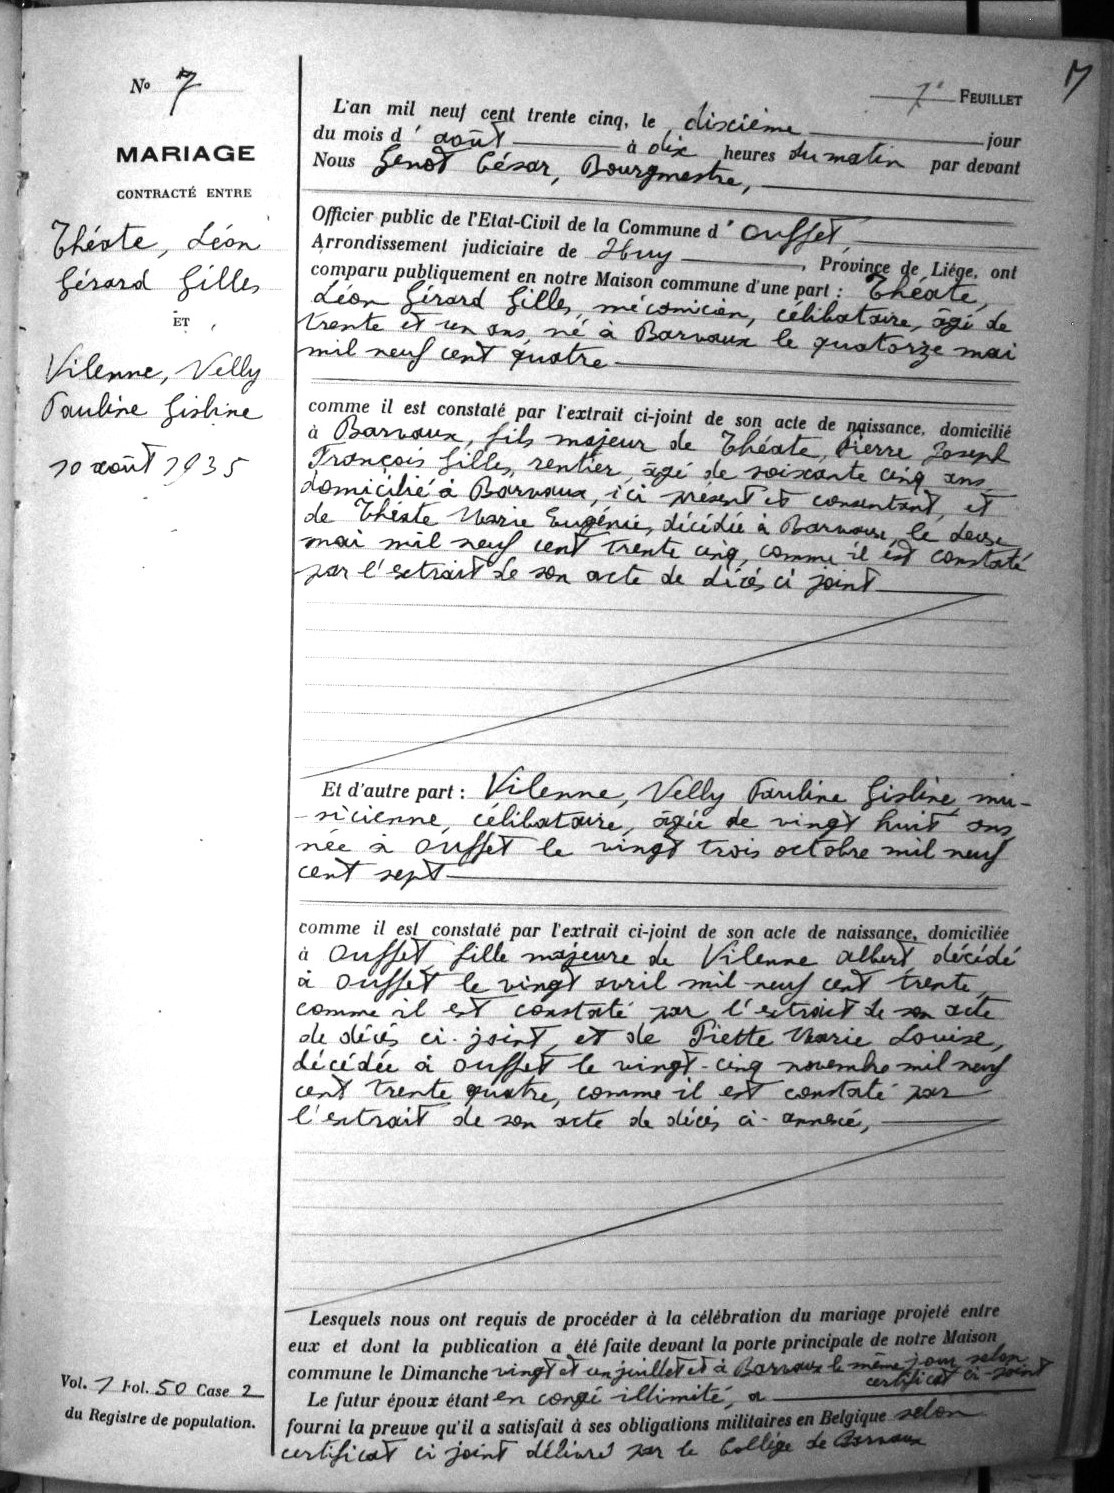 17
1er FEUILLET
No 7
MARIAGE
CONTRACTÉ ENTRE
Théate, Léon
Gérard Gilles
ET
Vilenne, Nelly
Pauline Gisline
10 août 1935
L'an mil neuf cent trente cinq, le dixième jour
du mois d' août à dix heures du matin par devant
Nous Genot César, Bourgmestre,
Officier public de l'Etat-Civil de la Commune d' Ouffet,
Arrondissement judiciaire de Huy, Province de Liége, ont
comparu publiquement en notre Maison commune d'une part : Théate,
Léon Gérard Gilles, mécanicien, célibataire, âgé de
trente et un ans, né à Barvaux le quatorze mai
mil neuf cent quatre
comme il est constaté par l'extrait ci-joint de son acte de naissance, domicilié
à Barvaux, fils majeur de Théate, Pierre Joseph
François Gilles, rentier, âgé de soixante cinq ans
domicilié à Barvaux, ici présent et consentant, et
de Théate Marie Eugénie, décédée à Barvaux, le douze
mai mil neuf cent trente cinq, comme il est constaté
par l'extrait de son acte de décès ci joint
Et d'autre part : Vilenne, Nelly Pauline Gisline, mu-
-sicienne, célibataire, âgée de vingt huit ans,
née à Ouffet le vingt trois octobre mil neuf
cent sept
comme il est constaté par l'extrait ci-joint de son acte de naissance, domiciliée
à Ouffet fille majeure de Vilenne Albert décédé
à Ouffet le vingt avril mil-neuf cent trente,
comme il est constaté par l'extrait de son acte
de décès ci-joint, et de Piette Marie Louise,
décédée à Ouffet le vingt-cinq novembre mil neuf
cent trente quatre, comme il est constaté par
l'extrait de son acte de décès ci-annexé,
Lesquels nous ont requis de procéder à la célébration du mariage projeté entre
eux et dont la publication a été faite devant la porte principale de notre Maison
commune le Dimanche vingt et un juillet et à Barvaux le même jour selon
certificat ci-joint
Le futur époux étant en congé illimité, a
fourni la preuve qu'il a satisfait à ses obligations militaires en Belgique selon
certificat ci joint délivré par le Collège de Barvaux
Vol. 7 Fol. 50 Case 2
du Registre de population.